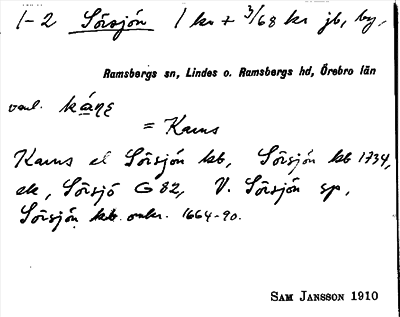 1-2 Sörsjön 1 kr + 3/68 kr jb, by,
Ramsbergs sn, Lindes o. Ramsbergs hd, Örebro län
vanl.
= Karns
Karns el Sörsjön kb, Sörsjön kb 1734,
ek, Sörsjö G 82, V. Sörsjön sp,
Sörsjön kb omkr. 1664-90.
SAM JANSSON 1910